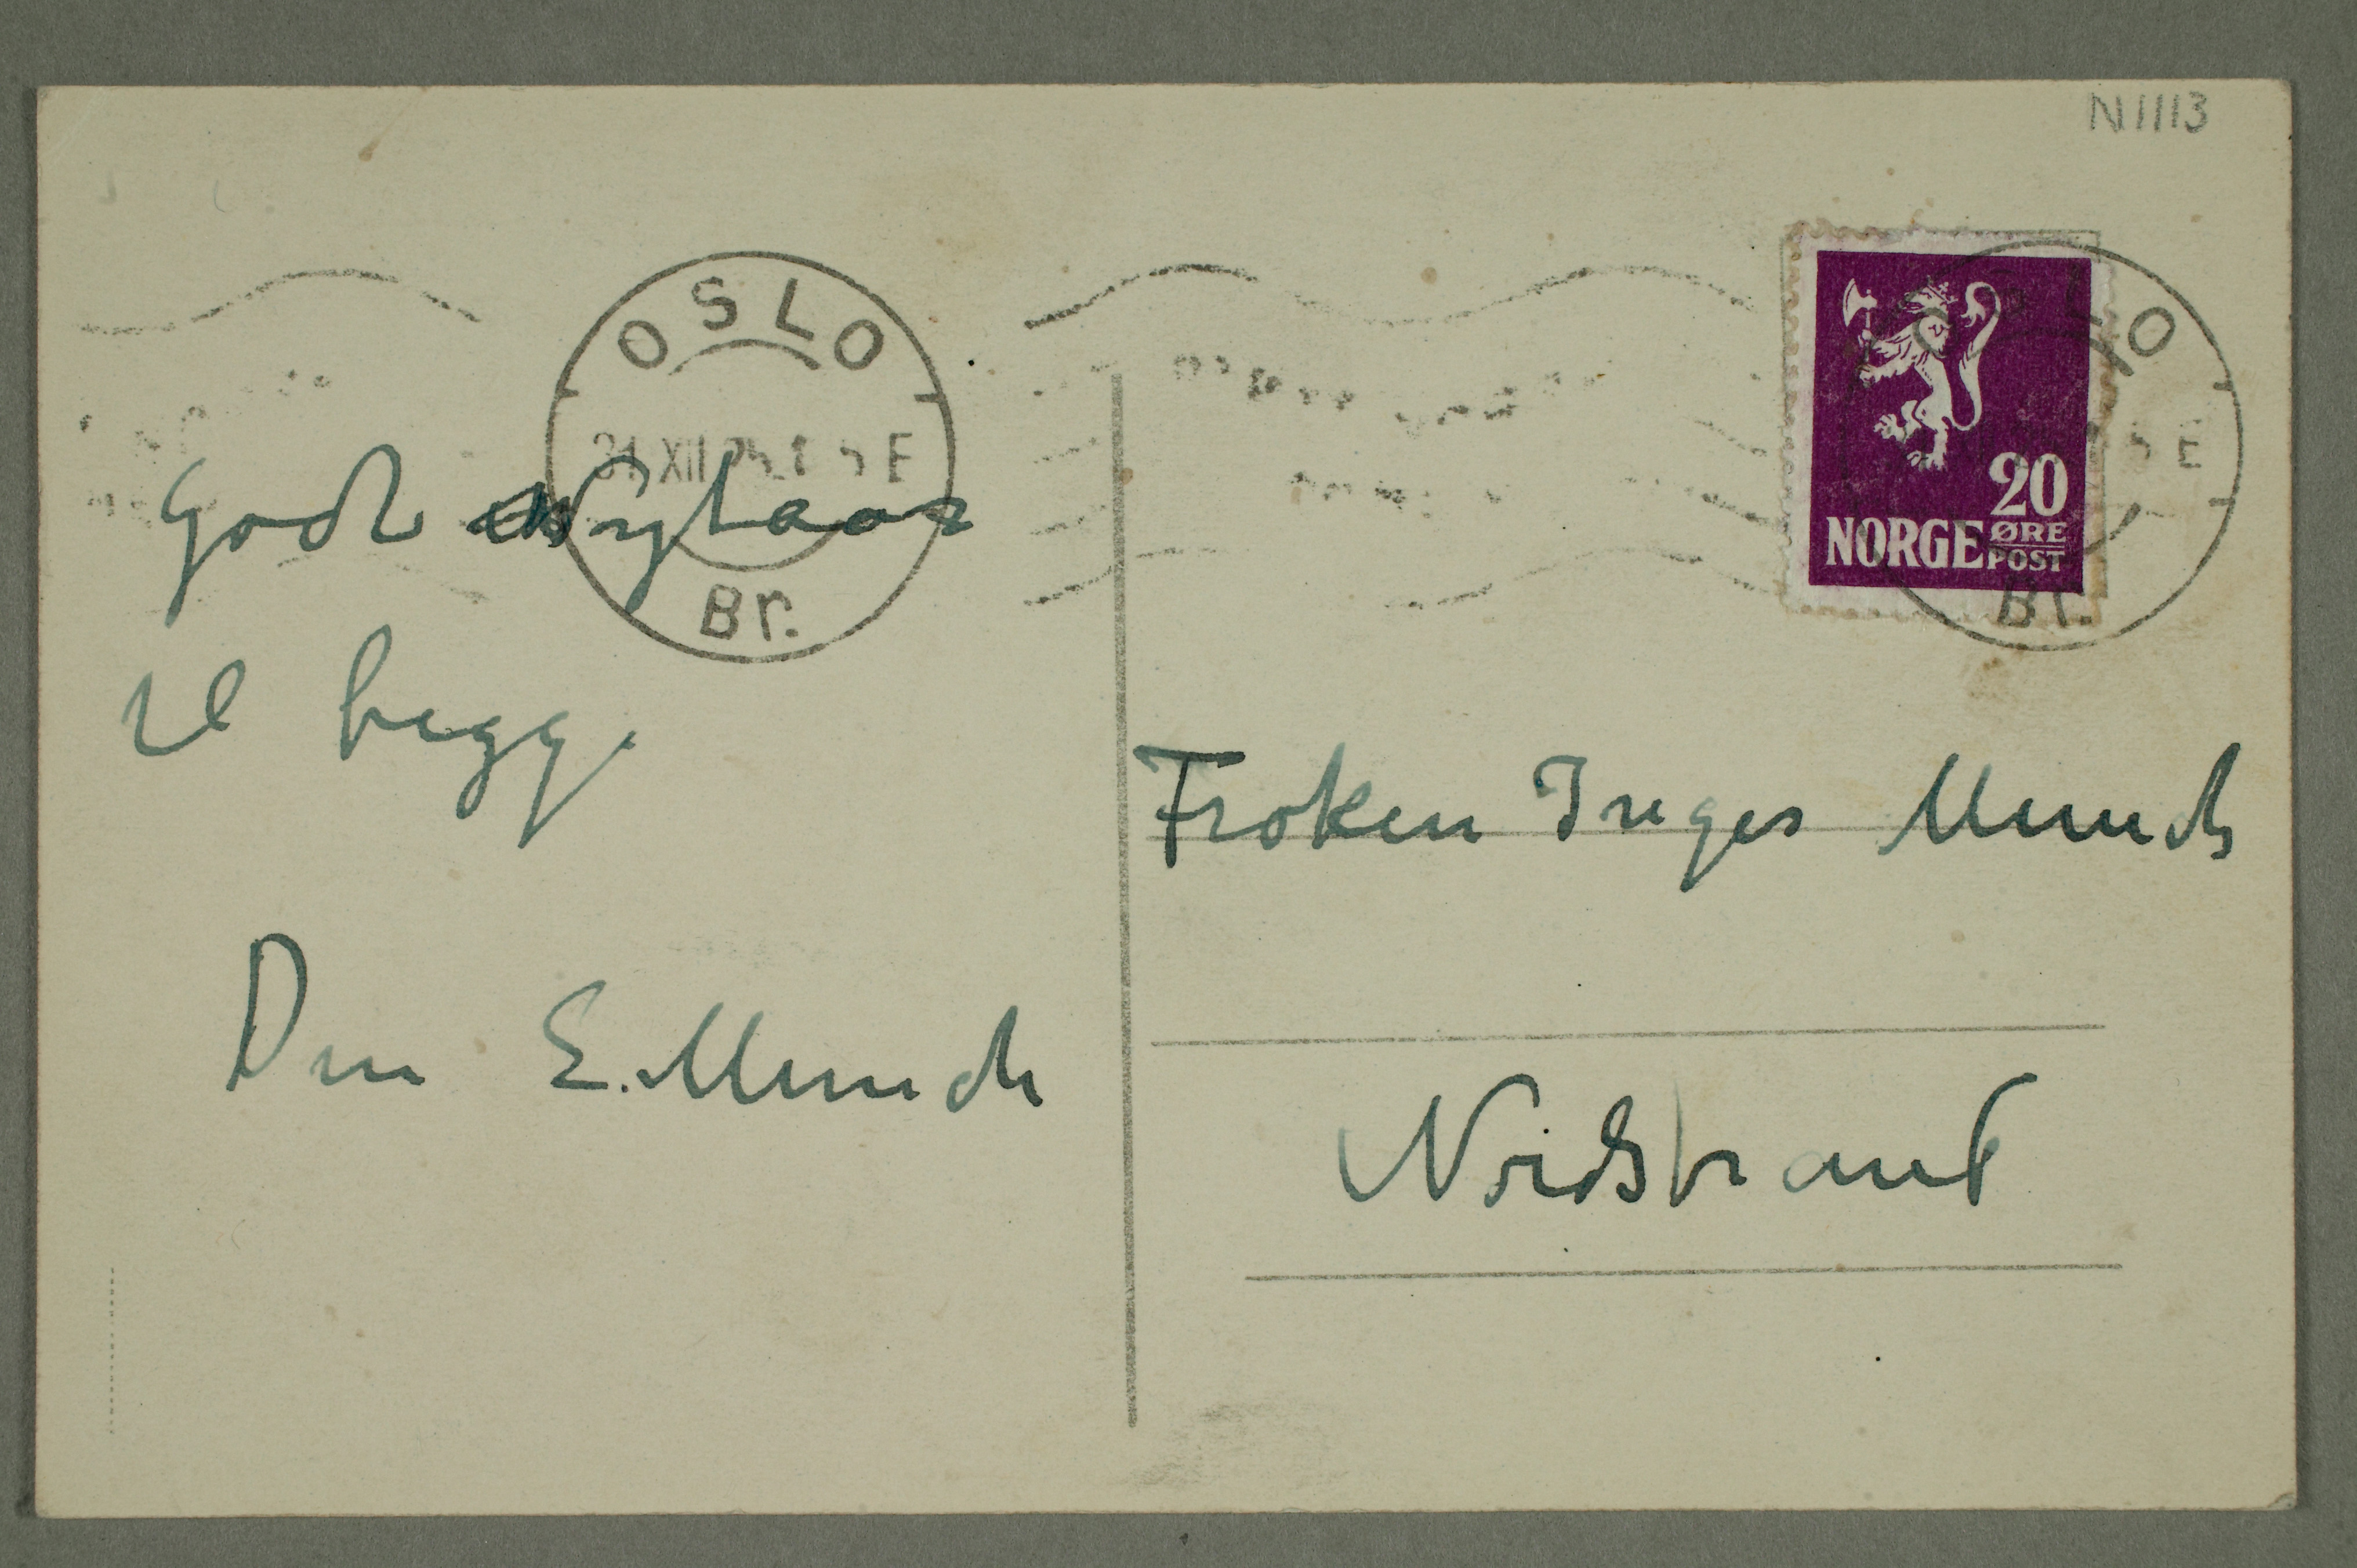 N 1113
OSLO
31 XII 25 E
Br.
OSLO
E
Br.
20
NORGE ØRE
POST
Godt Nytaar
til begge
Din E. Munch
Frøken Inger Munch
Nordstrand